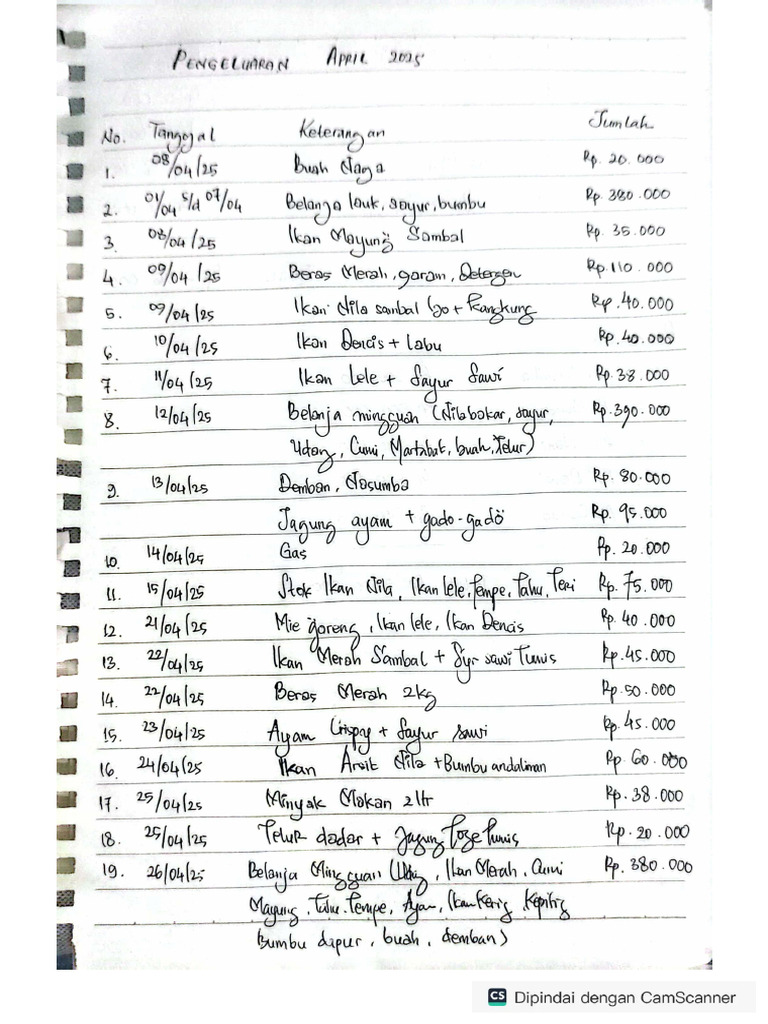 PENGELUARAN APRIL 2025
No. Tanggal Keterangan Jumlah
1. 08/04/25 Buah Naga Rp. 20.000
2. 01/04 s/d 07/04 Belanja lauk, sayur, bumbu Rp. 380.000
3. 08/04/25 Ikan Mayung Sambal Rp. 35.000
4. 09/04/25 Beras Merah, garam, Detergen Rp. 110.000
5. 09/04/25 Ikan Nila sambal Ijo + Kangkung Rp. 40.000
6. 10/04/25 Ikan Dencis + Labu Rp. 40.000
7. 11/04/25 Ikan Lele + Sayur Sawi Rp. 38.000
8. 12/04/25 Belanja mingguan (Nila bakar, sayur, Rp. 390.000
Udang, Cumi, Martabak, buah, Telur)
9. 13/04/25 Demban, Nasumba Rp. 80.000
Jagung ayam + gado-gado Rp. 95.000
10. 14/04/25 Gas Rp. 20.000
11. 15/04/25 Stok Ikan Nila, Ikan lele, Tempe, Tahu, Teri Rp. 75.000
12. 21/04/25 Mie goreng, Ikan lele, Ikan Dencis Rp. 40.000
13. 22/04/25 Ikan Merah Sambal + Syr sawi Tumis Rp. 45.000
14. 22/04/25 Beras Merah 2kg Rp. 50.000
15. 23/04/25 Ayam Crispy + Sayur sawi Rp. 45.000
16. 24/04/25 Ikan Arsik Nila + Bumbu andaliman Rp. 60.000
17. 25/04/25 Minyak Makan 2ltr Rp. 38.000
18. 25/04/25 Telur dadar + Jagung Toge Tumis Rp. 20.000
19. 26/04/25 Belanja Mingguan (Udang, Ikan Merah, Cumi Rp. 380.000
Mayung, Tahu, Tempe, Ayam, Ikan Kering, Kepiting
Bumbu dapur, buah, demban)
CS Dipindai dengan CamScanner